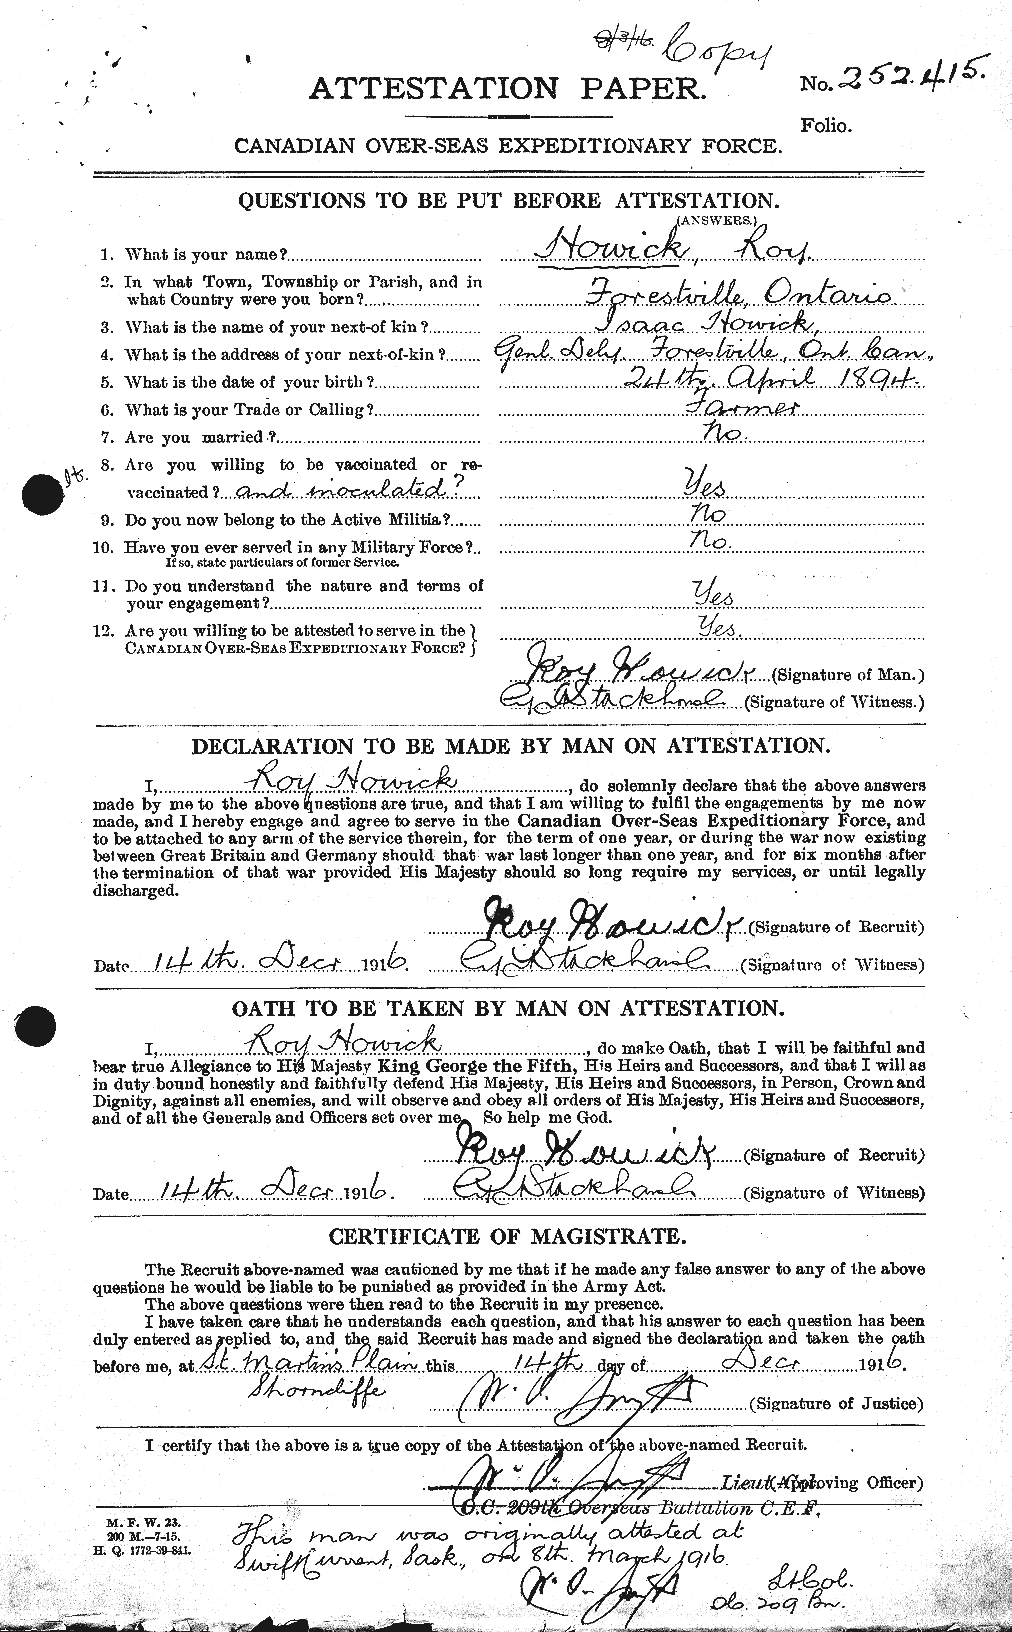 8/3/16. Copy
ATTESTATION PAPER.
No. 252415.
Folio.
CANADIAN OVER-SEAS EXPEDITIONARY FORCE.
QUESTIONS TO BE PUT BEFORE ATTESTATION.
(ANSWERS.)
1. What is your name? Howick, Roy.
2. In what Town, Township or Parish, and in
what Country were you born? Forestville, Ontario
3. What is the name of your next-of kin? Isaac Howick,
4. What is the address of your next-of-kin? Genl. Dely. Forestville, Ont. Can.,
5. What is the date of your birth? 24th. April 1894.
6. What is your Trade or Calling? Farmer
7. Are you married? No.
8. Are you willing to be vaccinated or re-
vaccinated? and inoculated? Yes
9. Do you now belong to the Active Militia? No
10. Have you ever served in any Military Force? No.
If so, state particulars of former Service.
11. Do you understand the nature and terms of
your engagement? Yes
12. Are you willing to be attested to serve in the
CANADIAN OVER-SEAS EXPEDITIONARY FORCE? Yes.
Roy Howick (Signature of Man.)
(Signature of Witness.)
DECLARATION TO BE MADE BY MAN ON ATTESTATION.
I, Roy Howick, do solemnly declare that the above answers
made by me to the above questions are true, and that I am willing to fulfil the engagements by me now
made, and I hereby engage and agree to serve in the Canadian Over-Seas Expeditionary Force, and
to be attached to any arm of the service therein, for the term of one year, or during the war now existing
between Great Britain and Germany should that war last longer than one year, and for six months after
the termination of that war provided His Majesty should so long require my services, or until legally
discharged.
Roy Howick (Signature of Recruit)
Date 14th. Decr 1916. (Signature of Witness)
OATH TO BE TAKEN BY MAN ON ATTESTATION.
I, Roy Howick, do make Oath, that I will be faithful and
bear true Allegiance to His Majesty King George the Fifth, His Heirs and Successors, and that I will as
in duty bound honestly and faithfully defend His Majesty, His Heirs and Successors, in Person, Crown and
Dignity, against all enemies, and will observe and obey all orders of His Majesty, His Heirs and Successors,
and of all the Generals and Officers set over me. So help me God.
Roy Howick (Signature of Recruit)
Date 14th. Decr 1916. (Signature of Witness)
CERTIFICATE OF MAGISTRATE.
The Recruit above-named was cautioned by me that if he made any false answer to any of the above
questions he would be liable to be punished as provided in the Army Act.
The above questions were then read to the Recruit in my presence.
I have taken care that he understands each question, and that his answer to each question has been
duly entered as replied to, and the said Recruit has made and signed the declaration and taken the oath
before me, at St. Martin's Plain this 14th day of Decr 1916.
Shorncliffe
W. O. Smyth (Signature of Justice)
I certify that the above is a true copy of the Attestation of the above-named Recruit.
W. O. Smyth Lieut Col. (Approving Officer)
O.C. 209th Overseas Battalion C.E.F.
M. F. W. 23.
200 M.—7-15.
H. Q. 1772-39-841.
This man was originally attested at
Swift Current, Sask., on 8th. March 1916.
W. O. Smyth Lt Col.
Oc. 209 Bn.